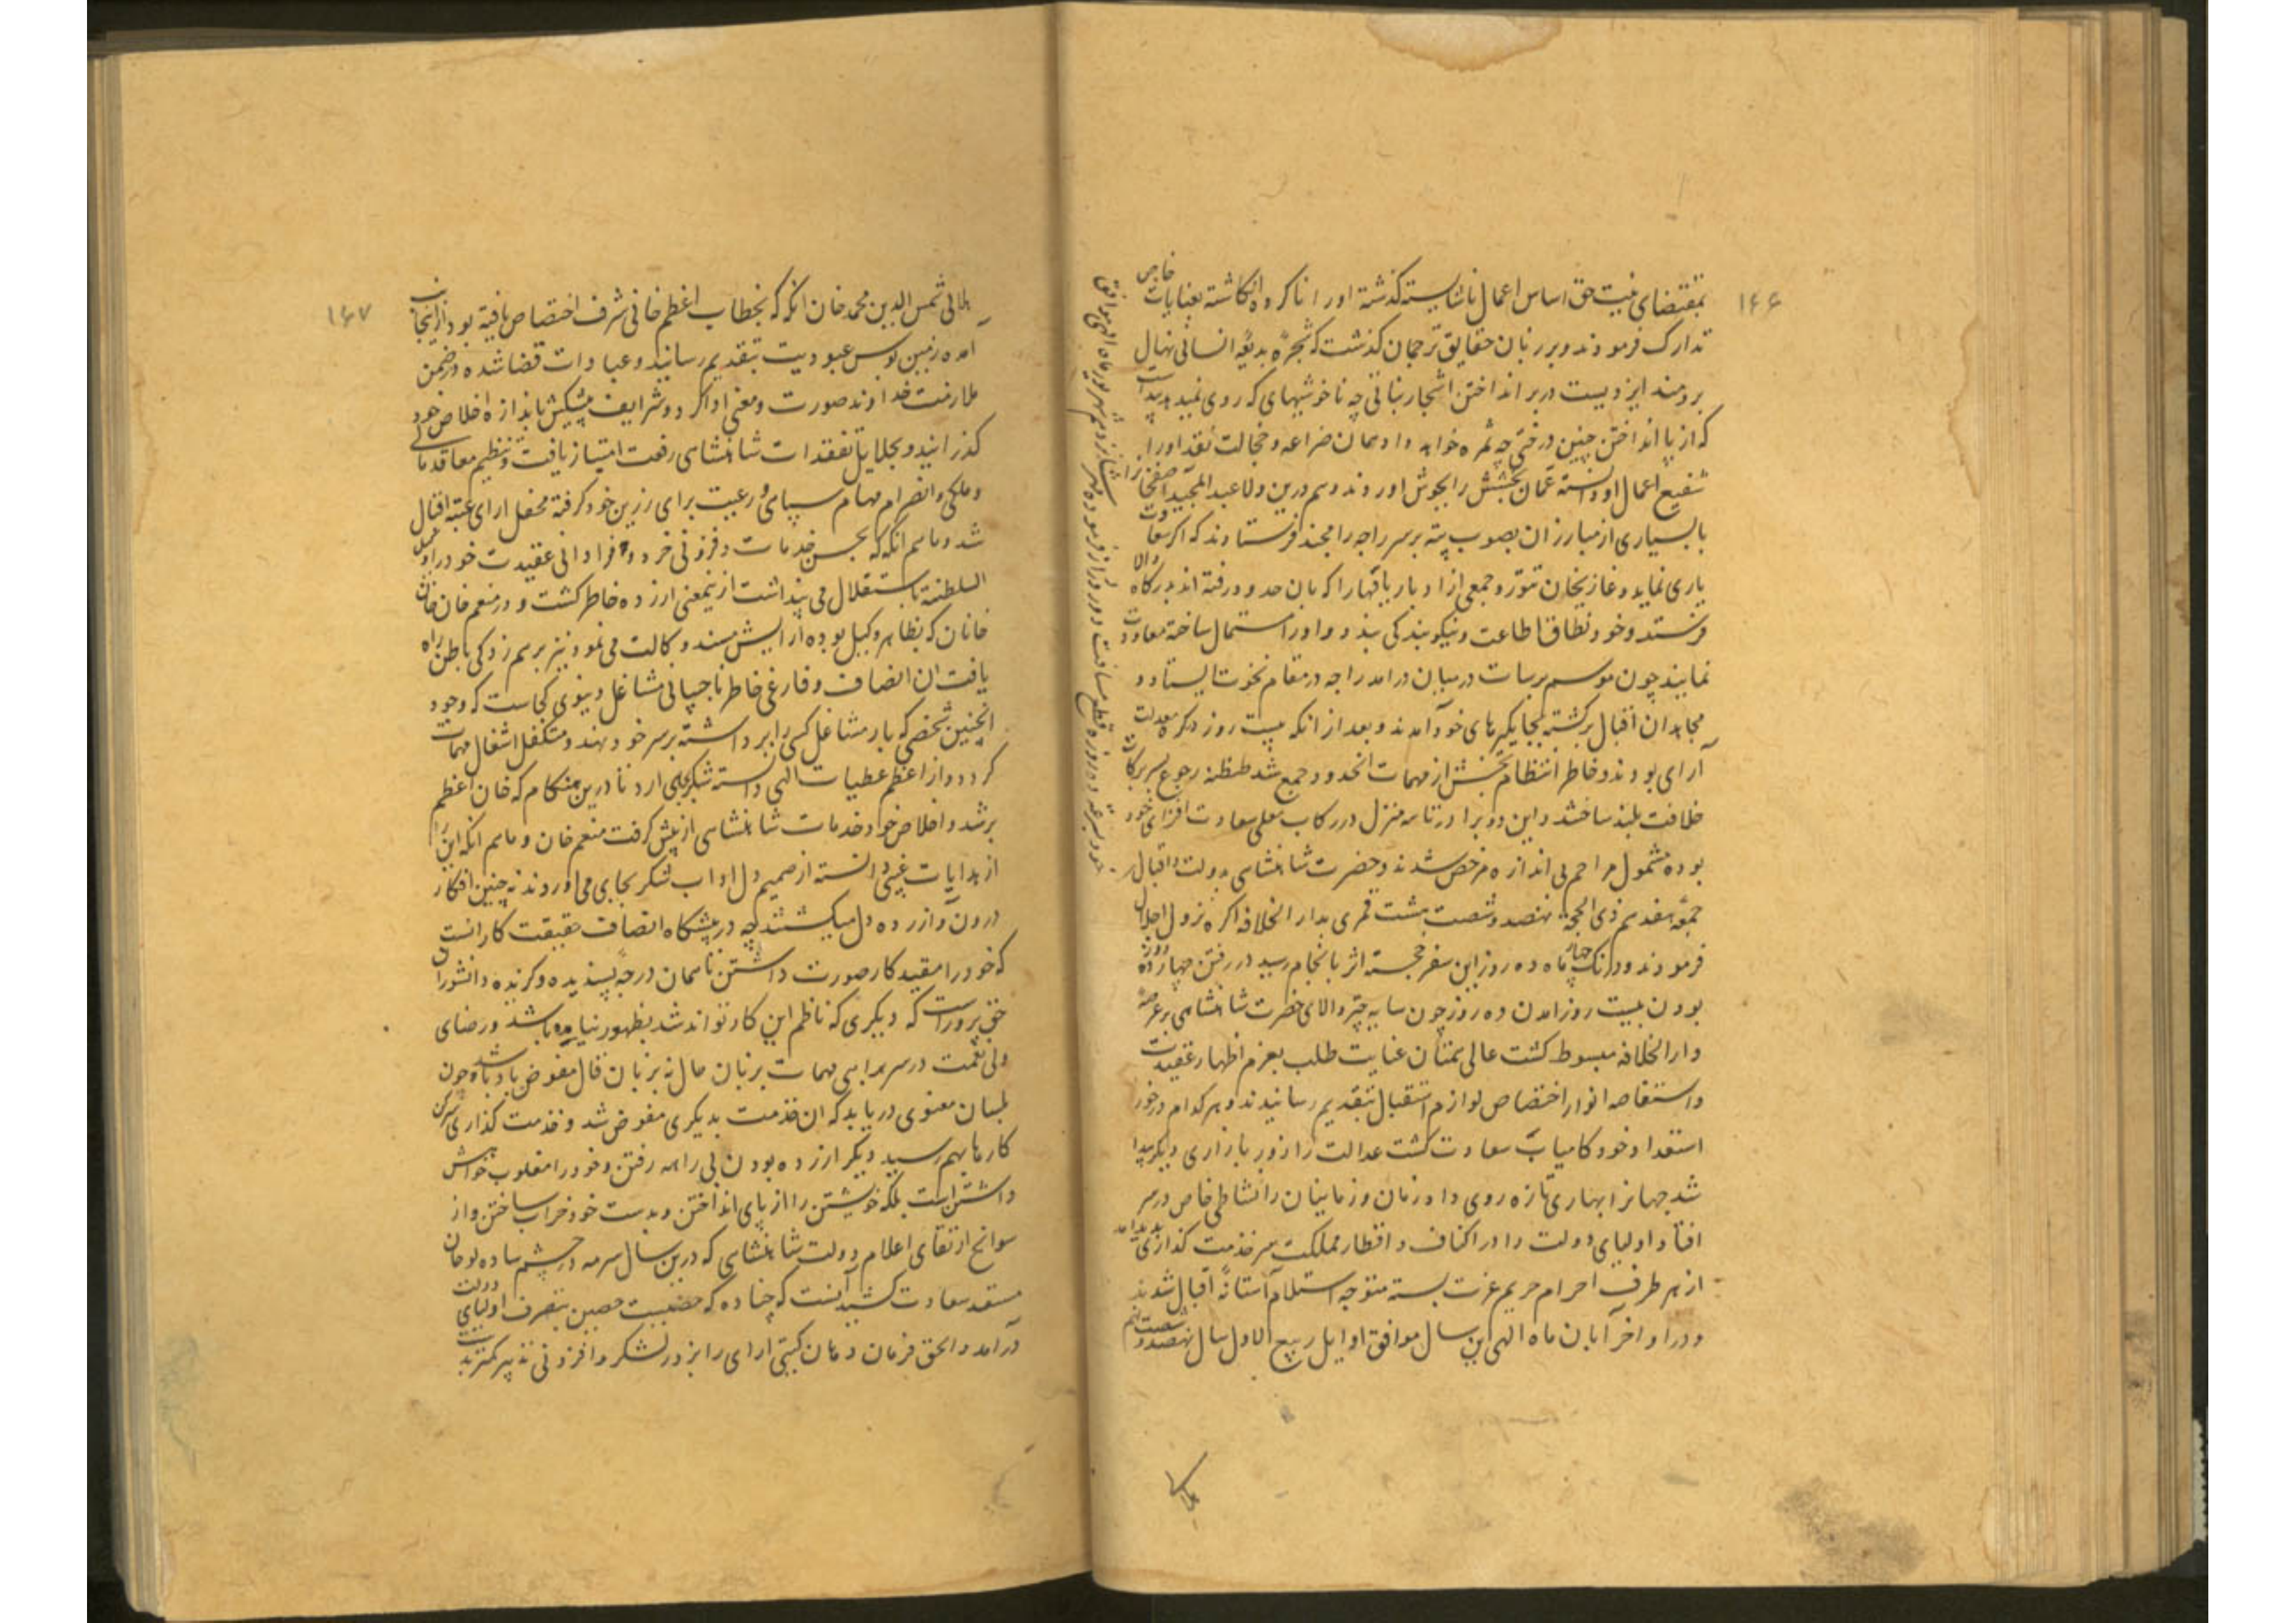 ۱۶۶
بمقتضای نیت حق اساس اعمال ناشایسته گذشته اورا ناکرده انگاشته بعنایات خاص
تدارک فرمودند و بر زبان حقایق ترجمان گذشت که شجره بدیعه انسانی نهال
برومند ایزدیست در بر انداختن اشجار نباتی چه ناخوشیهای که روی نمیدهد پیداست
که از پا انداختن چنین درختی چه ثمره خواهد داد همان ضراعه و خجالت نقد اورا
شفیع اعمال او دانسته عمان بخشش را بجوش اوردند و هم درین ولا عبد المجید اصفخانرا
با بسیاری از مبارزان بصوب پته بر سر راجه رامچند فرستادند که اگر سعادت
یاری نماید و غازیخان تنور و جمعی از ادبار یافتها را که بان حدود رفته اند بدرگاه والا
فرستد و خود نطاق اطاعت و نیکو بندگی بندد و اورا استمال ساخته معاودت
نمایند چون موسم برسات درمیان درامد راجه در مقام نخوت ایستاد و
مجاهدان اقبال برگشته بجایگیرهای خود آمدند و بعد از انکه بیست روز دکر معدلت
آرای بودند و خاطر انتظام بخش از مهمات انحدود جمع شد طنطنه رجوع بسریر کات
خلافت بلند ساختند و این دو برادر تا سه منزل در رکاب معلی سعادت افزای خود
بوده مشمول مراحم بی اندازه مرخص شدند و حضرت شاهنشاهی بدولت و اقبال
جمعه هفدهم ذی الحجه نهصد و شصت هشت قمری بدار الخلافه اگره نزول اجلال
فرمودند و درنک چهار ماه ده روز این سفر خجسته اثر بانجام رسید در رفتن چهارده روزه
بودن بیست روز امدن ده روز چون سایه چتر والای حضرت شاهنشاهی بر عرصه
دار الخلافه مبسوط گشت عالی همتان عنایت طلب بعزم اظهار عقیدت
و استفاضه انوار اختصاص لوازم استقبال بتقدیم رسانیدند و هر کدام درخور
استعداد خود کامیاب سعادت گشت عدالت را زور بازاری دیگر پیدا
شد جهانرا بهاری تازه روی داد زمان و زمانیان را نشاطی خاص در سر
افتاد اولیای دولت را در اکناف و اقطار مملکت سر خدمت گذاری پدید امد
از هر طرف احرام حریم عزت بسته متوجه استلام آستانه اقبال شدند
و در اواخر آبان ماه الهی این سال موافق اوایل ربیع الاول سال نهصد و شصت نهم
۱۶۷
شمس الدین محمد خان اتکه که بخطاب اعظم خانی شرف اختصاص یافته بود از پنجاب
امده زمین بوس عبودیت بتقدیم رسانید و عبادات قضا شده در ضمن
ملازمت خداوند صورت و معنی ادا کرد و شرایف پیشکش باندازه اخلاص خود
گذرانید و بجلایل تفقدات شاهنشاهی رفعت امتیاز یافت و تنظیم معاقد مالی
و ملکی و انصرام مهام سپاهی و رعیت برای رزین خود گرفته محفل ارای عتبه اقبال
شد و ماهم انکه که بحسن خدمات و فزونی خرد و فراوانی عقیدت خود را وکیل
السلطنه باستقلال می پنداشت از ینمعنی ازرده خاطر گشت و در منعم خان خان
خانان که بظاهر وکیل بوده آرایش مسند وکالت می نمود نیز برسم زدگی باطن راه
یافت ان انصاف و فارغی خاطر ناچسپانی مشاغل دنیوی کجاست که وجود
انچنین شخصی که بار مشاغل کسی را برداشته بر سر خود نهد و متکفل اشغال مهمات
گردد و از اعظم عطیات الهی دانسته شکر بجای ارد تا درین هنگام که خان اعظم
برشد و اخلاص خود خدمات شاهنشاهی از پیش گرفت منعم خان و ماهم انکه این را
از هدایات غیبی دانسته از صمیم دل اداب شکر بجای می اوردند نه چنین افکار
درون و ازرده دل میگشتند چه در پیشگاه انصاف حقیقت کار انست
که خود را مقید کار صورت داشتن ناسمان درجه پسندیده و گزیده دانشورا
حق پرور است که دیگری که ناظم این کار تواند شد بظهور نیامده باشد و رضای
ولی نعمت در سربراهی مهمات بزبان حال نه بزبان قال مفوض باو باشد چون
بلسان معنوی دریابد که ان خدمت بدیگری مفوض شد و خدمت گذاری سرکن
کارها بهم رسید دیگر ازرده بودن بی راهه رفتن و خود را مغلوب خواهش
داشتن است بلکه خویشتن را از پای انداختن و بدست خود خراب ساختن و از
سوانح ارتقای اعلام دولت شاهنشاهی که درین سال سرمه در چشم ساده لوحان
مستعد سعادت کشید آنست که چناده که حصنیست حصین بتصرف اولیای دولت
درآمد و الحق فرمان دهان گیتی ارای را بزور لشکر و افزونی تدبیر کمتر بدست